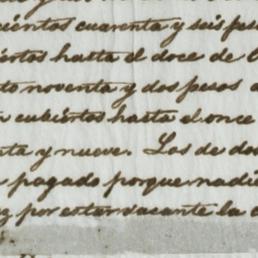 cuarenta y seis pes
hasta el doce de
noventa y dos pesos
cubiertos hasta el once
y nueve. Los de do
pagado porque nadi
por estar vacante la